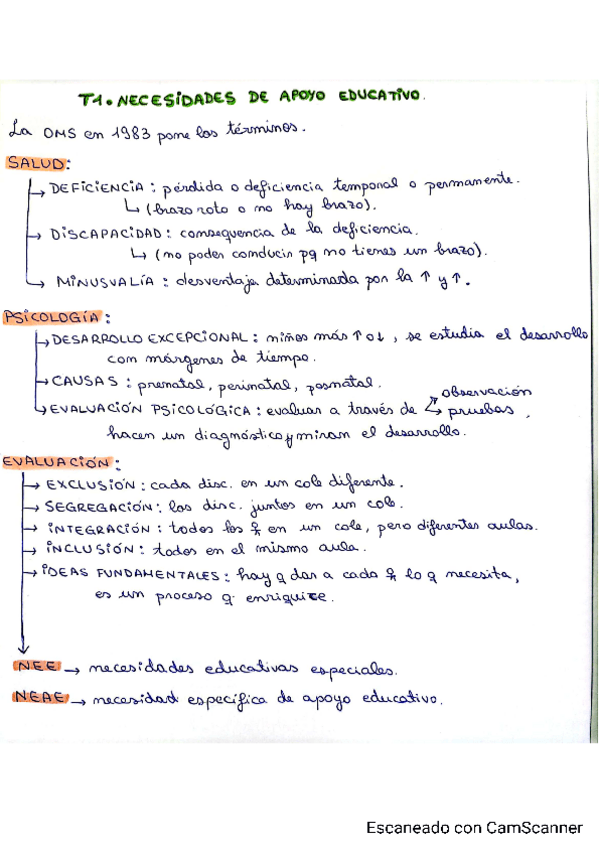 T1. NECESIDADES DE APOYO EDUCATIVO.
La OMS en 1983 pone los términos.
SALUD:
↳ DEFICIENCIA: pérdida o deficiencia temporal o permanente.
↳ (brazo roto o no hay brazo).
→ DISCAPACIDAD: consequencia de la deficiencia.
↳ (no poder conducir pq no tienes un brazo).
↳ MINUSVALÍA: desventaja determinada por la ↑ y ↑.
PSICOLOGÍA:
↳ DESARROLLO EXCEPCIONAL: niños más ↑ o ↓, se estudia el desarrollo
con márgenes de tiempo.
→ CAUSAS: prenatal, perinatal, posnatal.
observación
↳ EVALUACIÓN PSICOLÓGICA: evaluar a través de pruebas,
hacen un diagnóstico y miran el desarrollo.
EVALUACIÓN:
→ EXCLUSIÓN: cada disc. en un cole diferente.
→ SEGREGACIÓN: los disc. juntos en un cole.
→ INTEGRACIÓN: todos los en un cole, pero diferentes aulas.
→ INCLUSIÓN: todos en el mismo aula.
→ IDEAS FUNDAMENTALES: hay q dar a cada lo q necesita,
es un proceso q enriquice.
NEE → necesidades educativas especiales.
NEAE → necesidad específica de apoyo educativo.
Escaneado con CamScanner